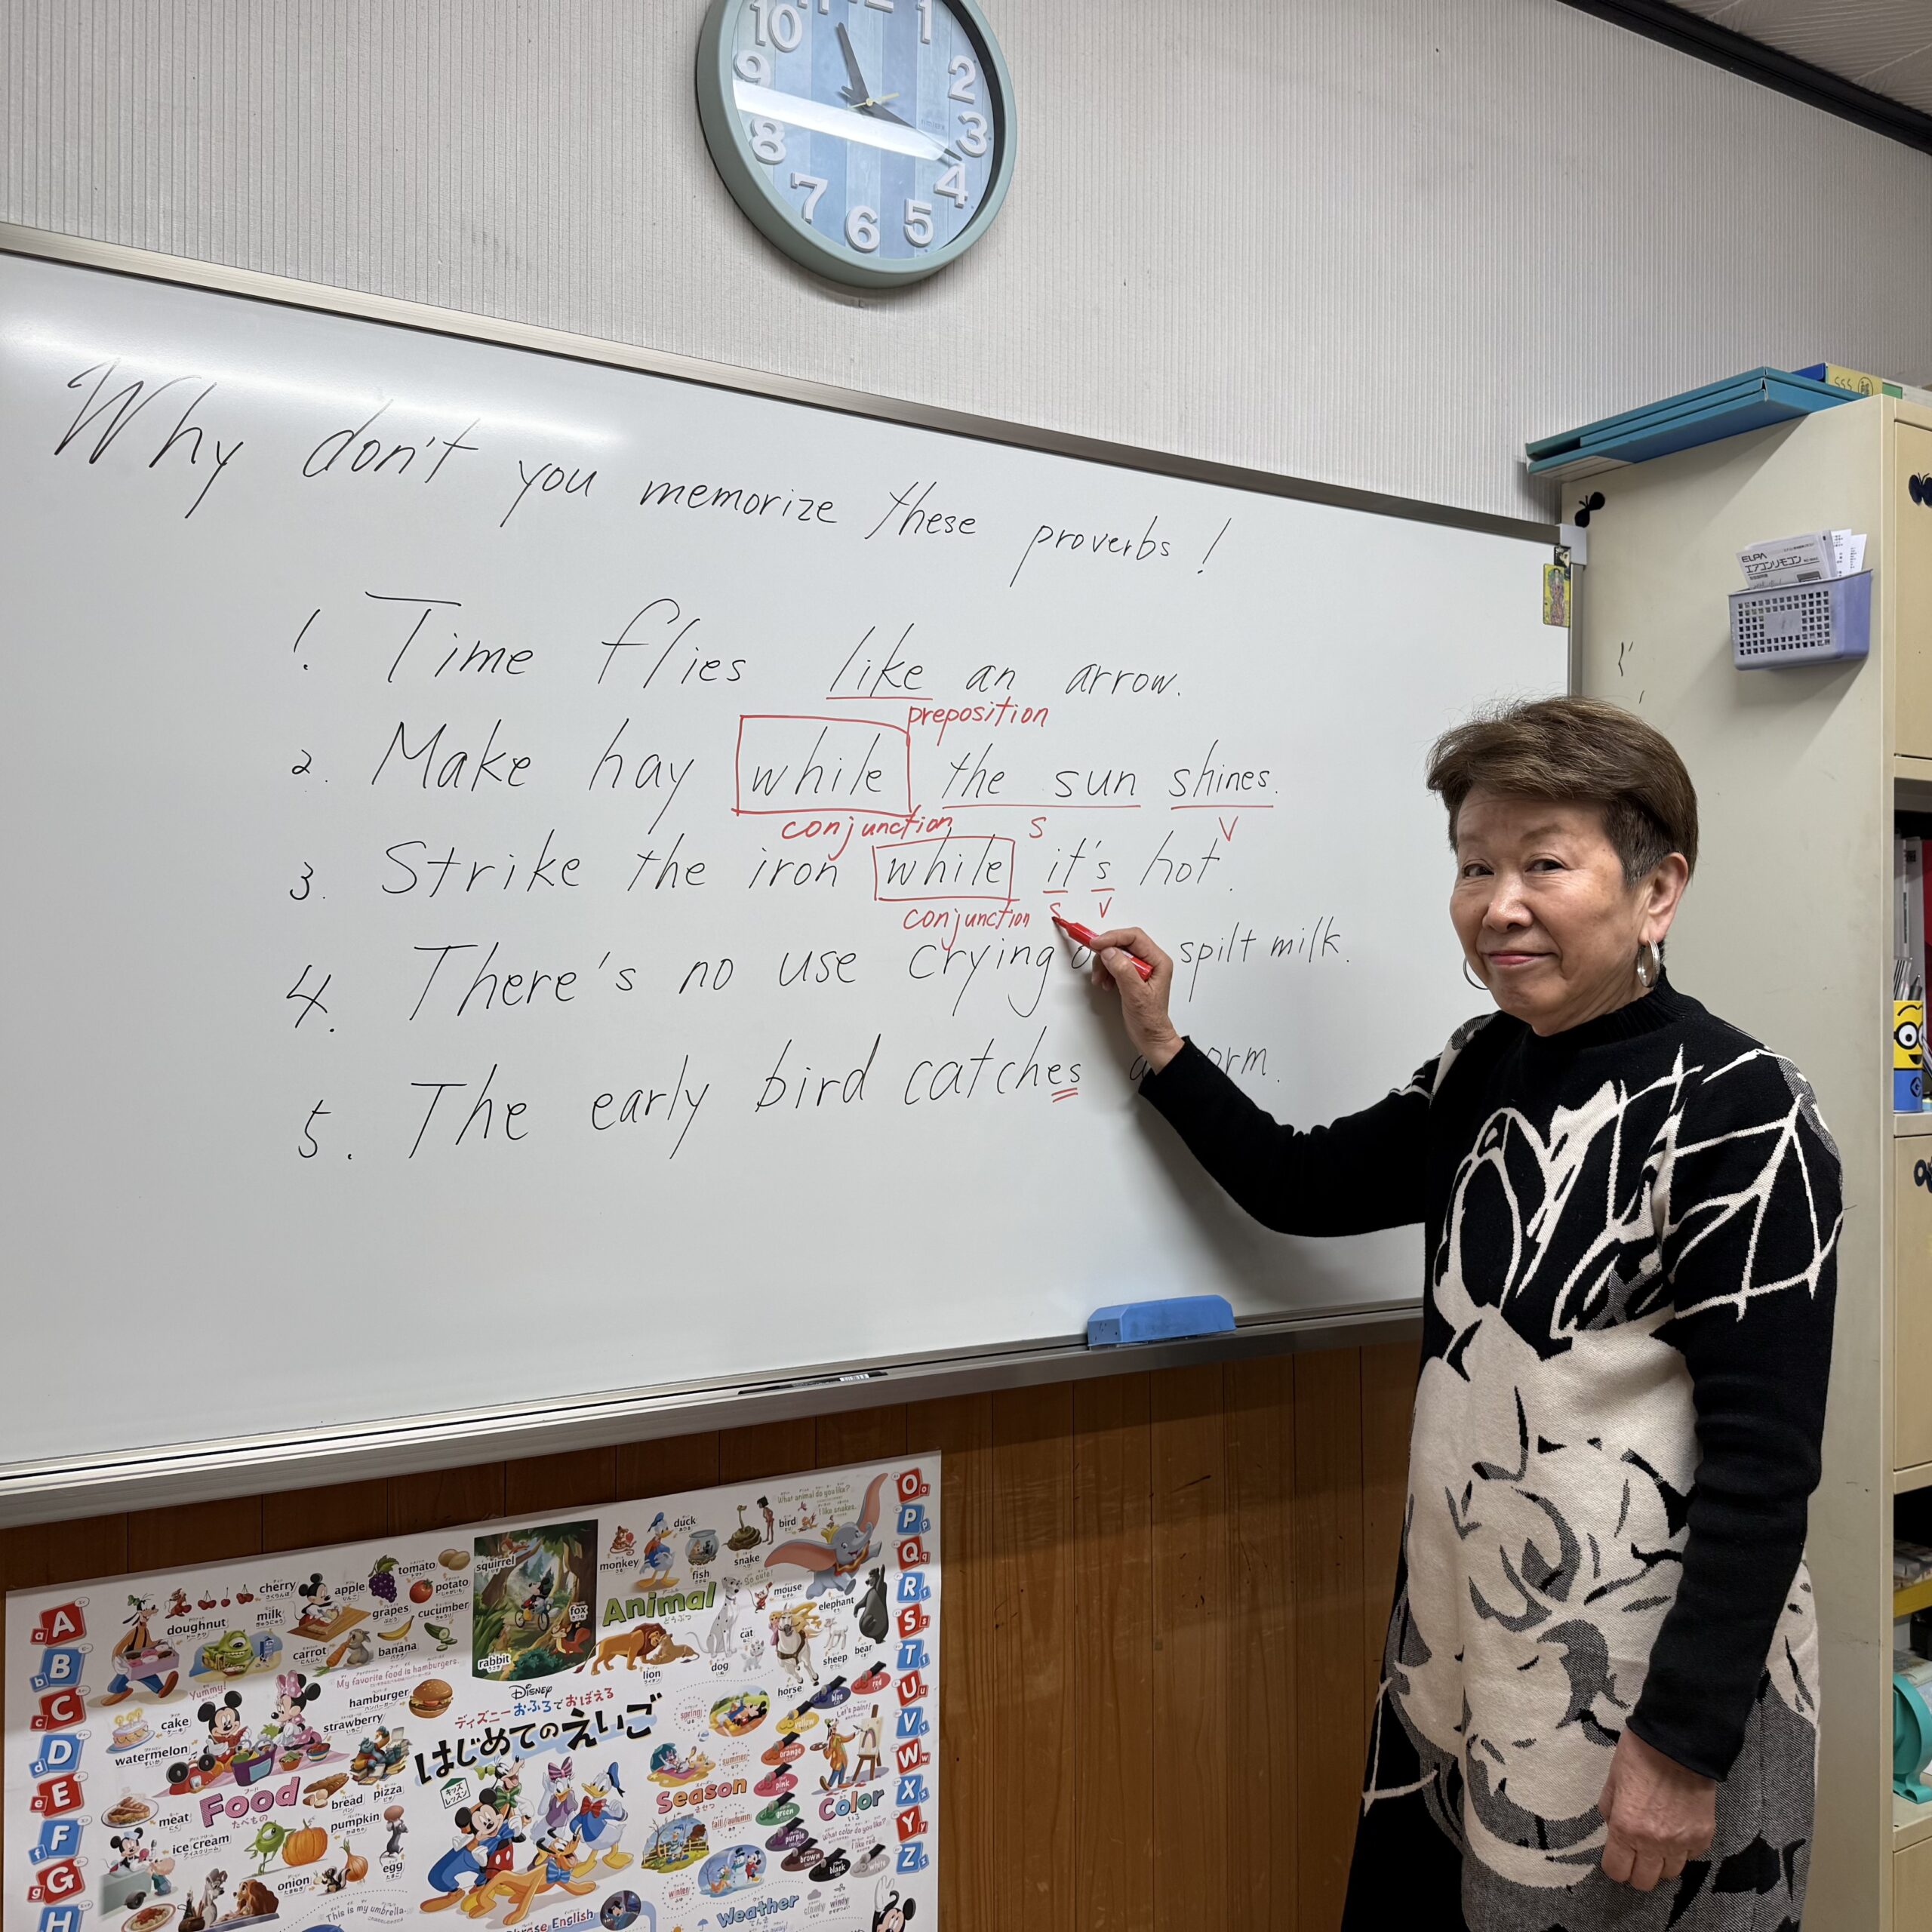 10 1
9 2
8 3
7 4
6 5
Why don't you memorize these proverbs!
1. Time flies like an arrow.
preposition
2. Make hay while the sun shines.
conjunction S V
3. Strike the iron while it's hot.
conjunction S V
4. There's no use crying spilt milk.
5. The early bird catches a
ELPA
エアコンリモコン
SSS
A a
B b
C c
D d
E e
F f
G g
H
O
P
Q
R
S
T
U
V
W
X
Y
Z
cherry
apple
tomato
potato
doughnut
milk
grapes
cucumber
carrot
banana
My favorite food is hamburgers.
Yummy!
hamburger
cake
strawberry
watermelon
Food
たべもの
bread
pizza
meat
pumpkin
ice cream
egg
onion
This is my umbrella.
squirrel
fox
rabbit
monkey
duck
fish
snake
bird
What animal do you like?
I like snakes.
So cute!
Animal
どうぶつ
mouse
elephant
cat
dog
lion
horse
sheep
bear
Disney
ディズニーおふろでおぼえる
はじめてのえいご
キッズレッスン
spring
summer
Season
きせつ
fall/autumn
winter
red
blue
yellow
Let's paint!
orange
pink
green
Color
いろ
purple
What color do you like?
I like red.
brown
black
white
Weather
てんき
cloudy
windy
English